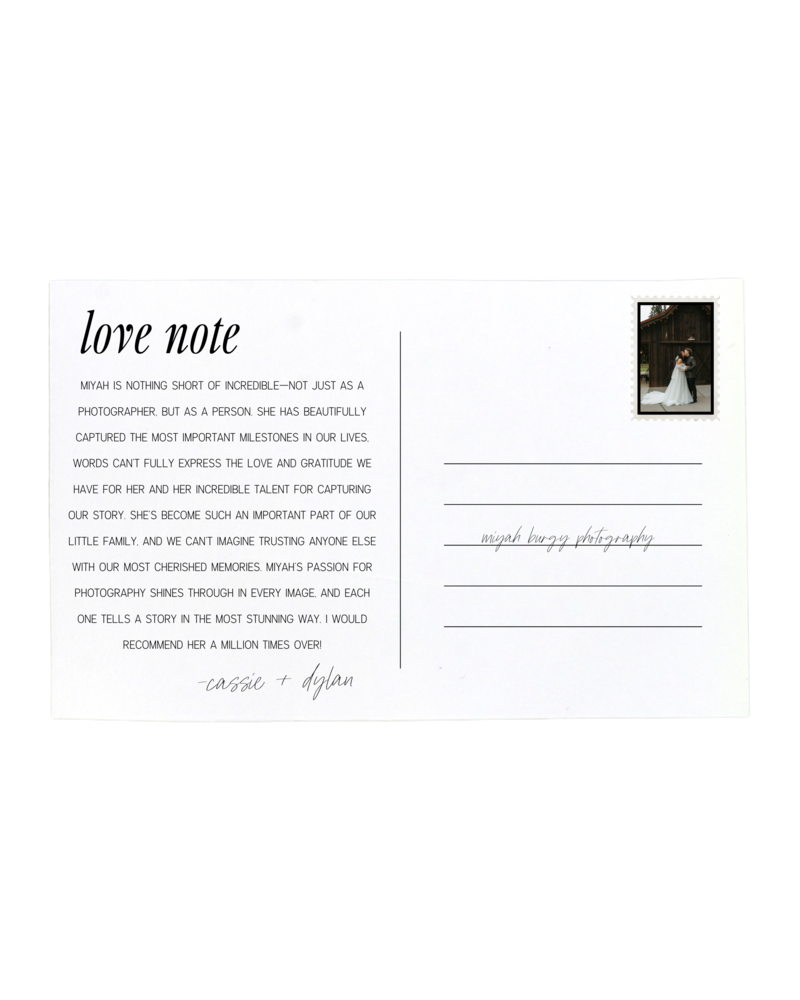 love note
MIYAH IS NOTHING SHORT OF INCREDIBLE—NOT JUST AS A
PHOTOGRAPHER, BUT AS A PERSON. SHE HAS BEAUTIFULLY
CAPTURED THE MOST IMPORTANT MILESTONES IN OUR LIVES.
WORDS CAN'T FULLY EXPRESS THE LOVE AND GRATITUDE WE
HAVE FOR HER AND HER INCREDIBLE TALENT FOR CAPTURING
OUR STORY. SHE'S BECOME SUCH AN IMPORTANT PART OF OUR
LITTLE FAMILY, AND WE CAN'T IMAGINE TRUSTING ANYONE ELSE
WITH OUR MOST CHERISHED MEMORIES. MIYAH'S PASSION FOR
PHOTOGRAPHY SHINES THROUGH IN EVERY IMAGE, AND EACH
ONE TELLS A STORY IN THE MOST STUNNING WAY. I WOULD
RECOMMEND HER A MILLION TIMES OVER!
-cassie + dylan
miyah burgy photography